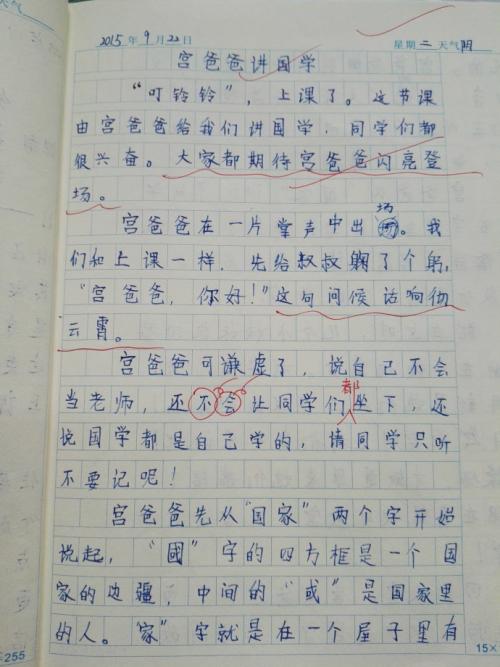 天气
2015年9月22日 星期二 天气阴
宫爸爸讲国学
“叮铃铃”,上课了。这节课
由宫爸爸给我们讲国学,同学们都
很兴奋。大家都期待宫爸爸闪亮登
场。
宫爸爸在一片掌声中出场。我
们和上课一样,先给叔叔鞠了个躬,
“宫爸爸,你好!”这句问候话响彻
云霄。
宫爸爸可谦虚了,说自己不会
当老师,还不会让同学们都坐下,还
说国学都是自己学的,请同学只听
不要记呢!
宫爸爸先从“国家”两个字开始
说起,“國”字的四方框是一个国
家的边疆,中间的“或”是国家里
的人。“家”字就是在一个屋子里有
255 15×